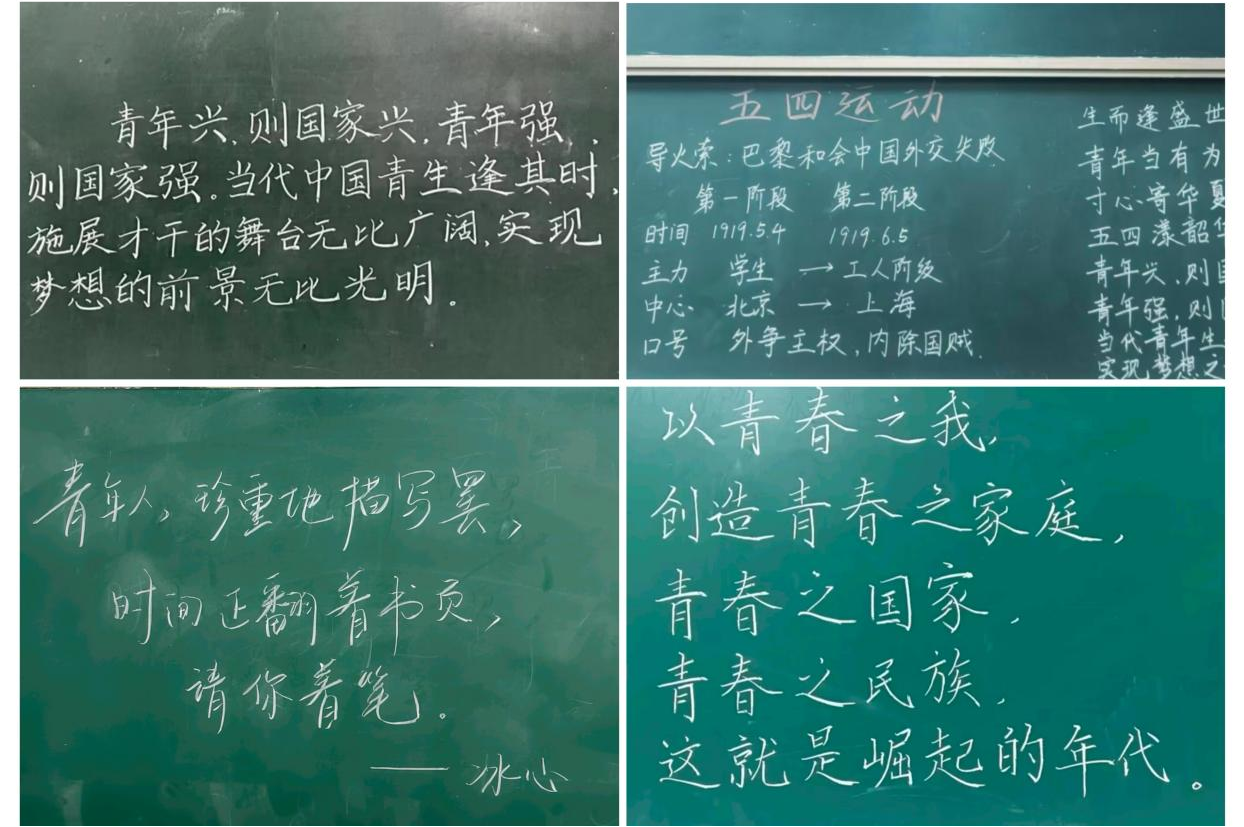 青年兴,则国家兴,青年强,
则国家强。当代中国青生逢其时,
施展才干的舞台无比广阔,实现
梦想的前景无比光明。
五四运动
导火索:巴黎和会中国外交失败
第一阶段 第二阶段
时间 1919.5.4 1919.6.5
主力 学生 → 工人阶级
中心 北京 → 上海
口号 外争主权,内除国贼.
生而逢盛世
青年当有为
寸心寄华夏
五四漾韶华
青年兴,则国
青年强,则国
当代青年生
实现梦想之
青年人,珍重地描写罢,
时间正翻着书页,
请你着笔。
——冰心
以青春之我,
创造青春之家庭,
青春之国家,
青春之民族,
这就是崛起的年代。